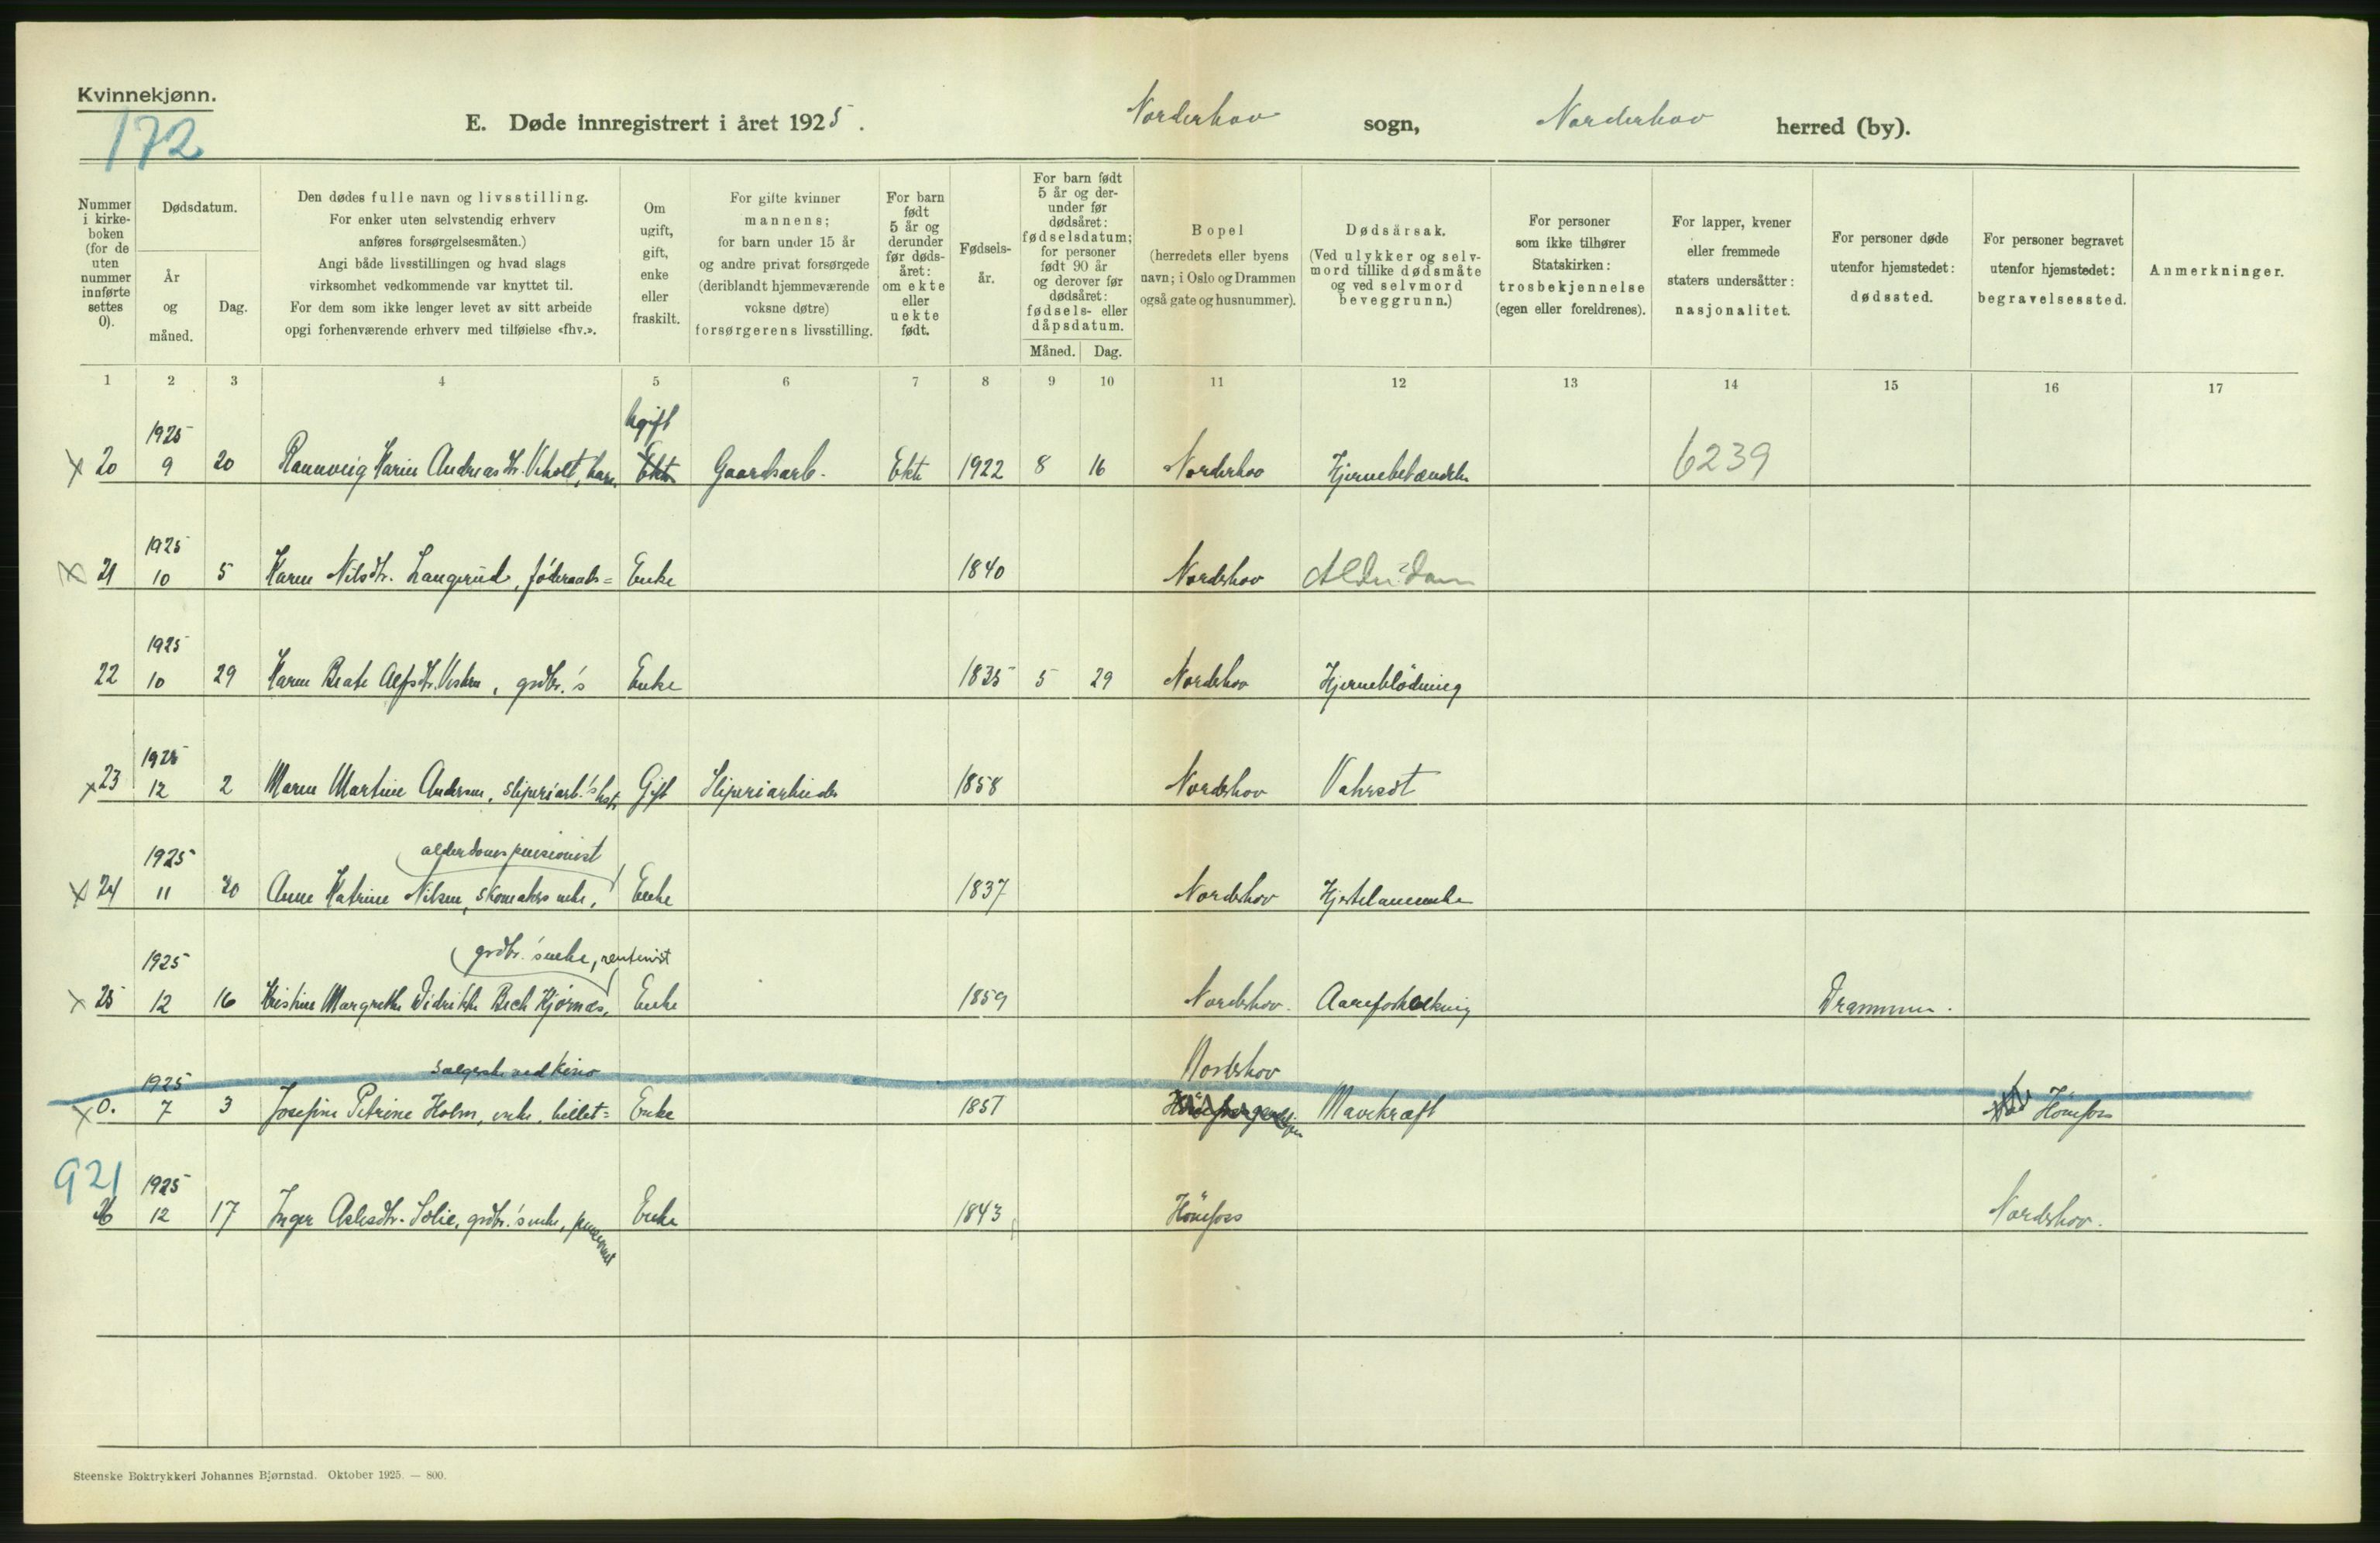 Kvinnekjønn.
172
E. Døde innregistrert i året 1925. Norderhov sogn, Norderhov herred (by).
Nummer i kirke-boken (for de uten nummer innførte settes 0).
Dødsdatum.
År og måned.
Dag.
Den dødes fulle navn og livsstilling.
For enker uten selvstendig erhverv
anføres forsørgelsesmåten.)
Angi både livsstillingen og hvad slags
virksomhet vedkommende var knyttet til.
For dem som ikke lenger levet av sitt arbeide
opgi forhenværende erhverv med tilføielse «fhv.».
Om ugift, gift, enke eller fraskilt.
For gifte kvinner
mannens;
for barn under 15 år
og andre privat forsørgede
(deriblandt hjemmeværende
voksne døtre)
forsørgerens livsstilling.
For barn født 5 år og derunder før døds-året: om ekte eller uekte født.
Fødsels-år.
For barn født
5 år og der-
under før
dødsåret:
fødselsdatum;
for personer
født 90 år
og derover før
dødsåret:
fødsels- eller
dåpsdatum.
Måned. Dag.
Bopel
(herredets eller byens
navn; i Oslo og Drammen
også gate og husnummer).
Dødsårsak.
(Ved ulykker og selv-
mord tillike dødsmåte
og ved selvmord
beveggrunn.)
For personer
som ikke tilhører
Statskirken:
trosbekjennelse
(egen eller foreldrenes).
For lapper, kvener
eller fremmede
staters undersåtter:
nasjonalitet.
For personer døde
utenfor hjemstedet:
dødssted.
For personer begravet
utenfor hjemstedet:
begravelsessted.
Anmerkninger.
1 2 3 4 5 6 7 8 9 10 11 12 13 14 15 16 17
1925 Ugift
x 20 9 20 Rannveig Karin Andreasdtr. Viholt, barn. Ekte Gaardsarb. Ekte 1922 8 16 Norderhov Hjernebetændelse 6239
1925
x 21 10 5 Karen Nilsdtr. Langerud, föderaads= Enke 1840 Norderhov Alderdom
1925
22 10 29 Karen Beate Alfsdtr. , grdbr.'s Enke 1835 5 29 Norderhov Hjerneblödning
1925
x 23 12 2 Maren Martine Andersen, sliperiarb.'s Gift Sliperiarbeider 1858 Norderhov
1925 alderdomspensionist
x 24 11 20 Anne Katrine Nilsen, skomakers enke, Enke 1837 Norderhov Hjertelammelse
1925 grdbr.'s enke, rentenist
x 25 12 16 Kristine Margrethe Didrikke Bech Hjörnæs, Enke 1859 Norderhov. Aareforkalkning Drammen.
1925 sælgerske ved kino Norderhov
x 0. 7 3 Josefine Petrine Holm, enke, billet= Enke 1857 Mavekræft Hönefoss
921 1925
26 12 17 Inger Aslesdtr. Solie, grdbr.'s enke, pensionist Enke 1843 Hönefoss Norderhov.
Steenske Boktrykkeri Johannes Bjørnstad. Oktober 1925. — 800.